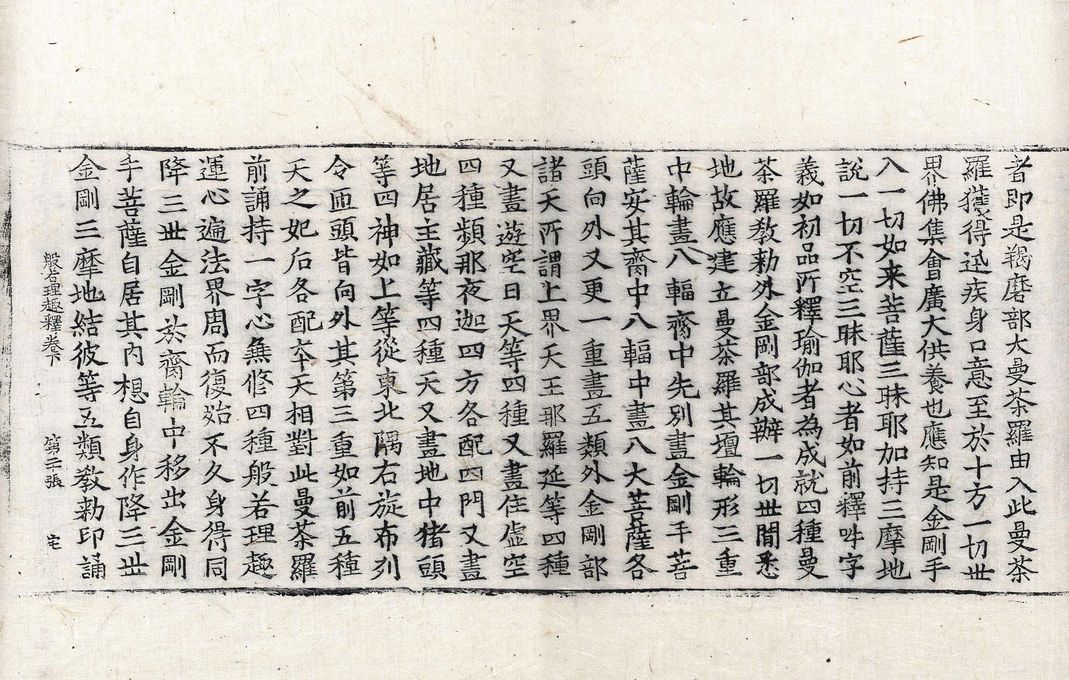 者即是羯磨部大曼荼羅由入此曼荼
羅獲得迅疾身口意至於十方一切世
界佛集會廣大供養也應知是金剛手
入一切如来菩薩三昧耶加持三摩地
說一切不空三昧耶心者如前釋吽字
義如初品所釋瑜伽者為成就四種曼
荼羅敎勑外金剛部成辦一切世閒悉
地故應建立曼荼羅其壇輪形三重
中輪畫八輻齊中先別畫金剛手菩
薩安其齊中八輻中畫八大菩薩各
頭向外又更一重畫五類外金剛部
諸天所謂上界天王那羅延等四種
又畫遊空日天等四種又畫住虛空
四種頻那夜迦四方各配四門又畫
地居主藏等四種天又畫地中猪頭
等四神如上等從東北隅右旋布列
令面頭皆向外其第三重如前五種
天之妃后各配夲天相對此曼荼羅
前誦持一字心無修四種般若理趣
運心遍法界周而復始不久身得同
降三世金剛於齊輪中移出金剛
手菩薩自居其內想自身作降三世
金剛三摩地結彼等五類敎勑印誦
般若理趣釋卷下 第三張 宅